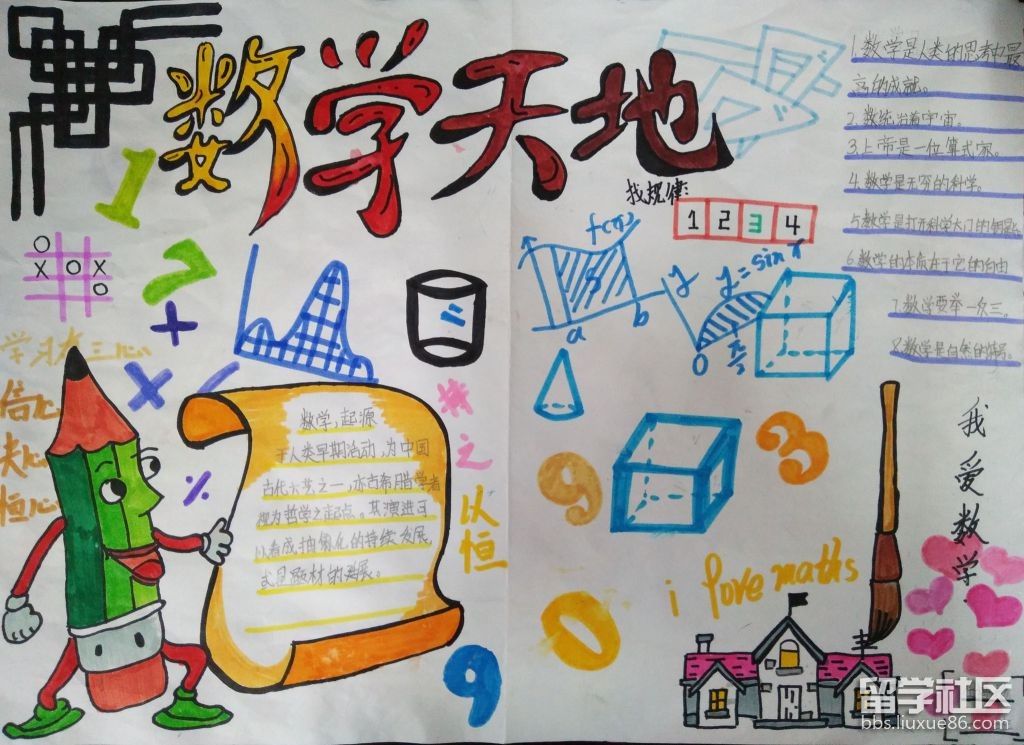 数学天地
1
2
+
×
%
O
X O X
O
学习有三心
信心
决心
恒心
数学,起源
于人类早期活动,为中国
古代六艺之一,亦古希腊学者
视为哲学之起点。其演进可
以看成抽象化的持续发展,
或是题材的延展。
持之
以恒
9
找规律:
1 2 3 4
f(x)
a b
y
y=sin x
0
9
3
0
i love maths
1.数学是人类的思考中最
高的成就。
2.数统治着宇宙。
3.上帝是一位算式家。
4.数学是无穷的科学。
5.数学是打开科学大门的钥匙。
6.数学的本质在于它的自由
7.数学要举一反三。
8.数学是自然的
我爱数学
留学社区
bbs.liuxue86.com